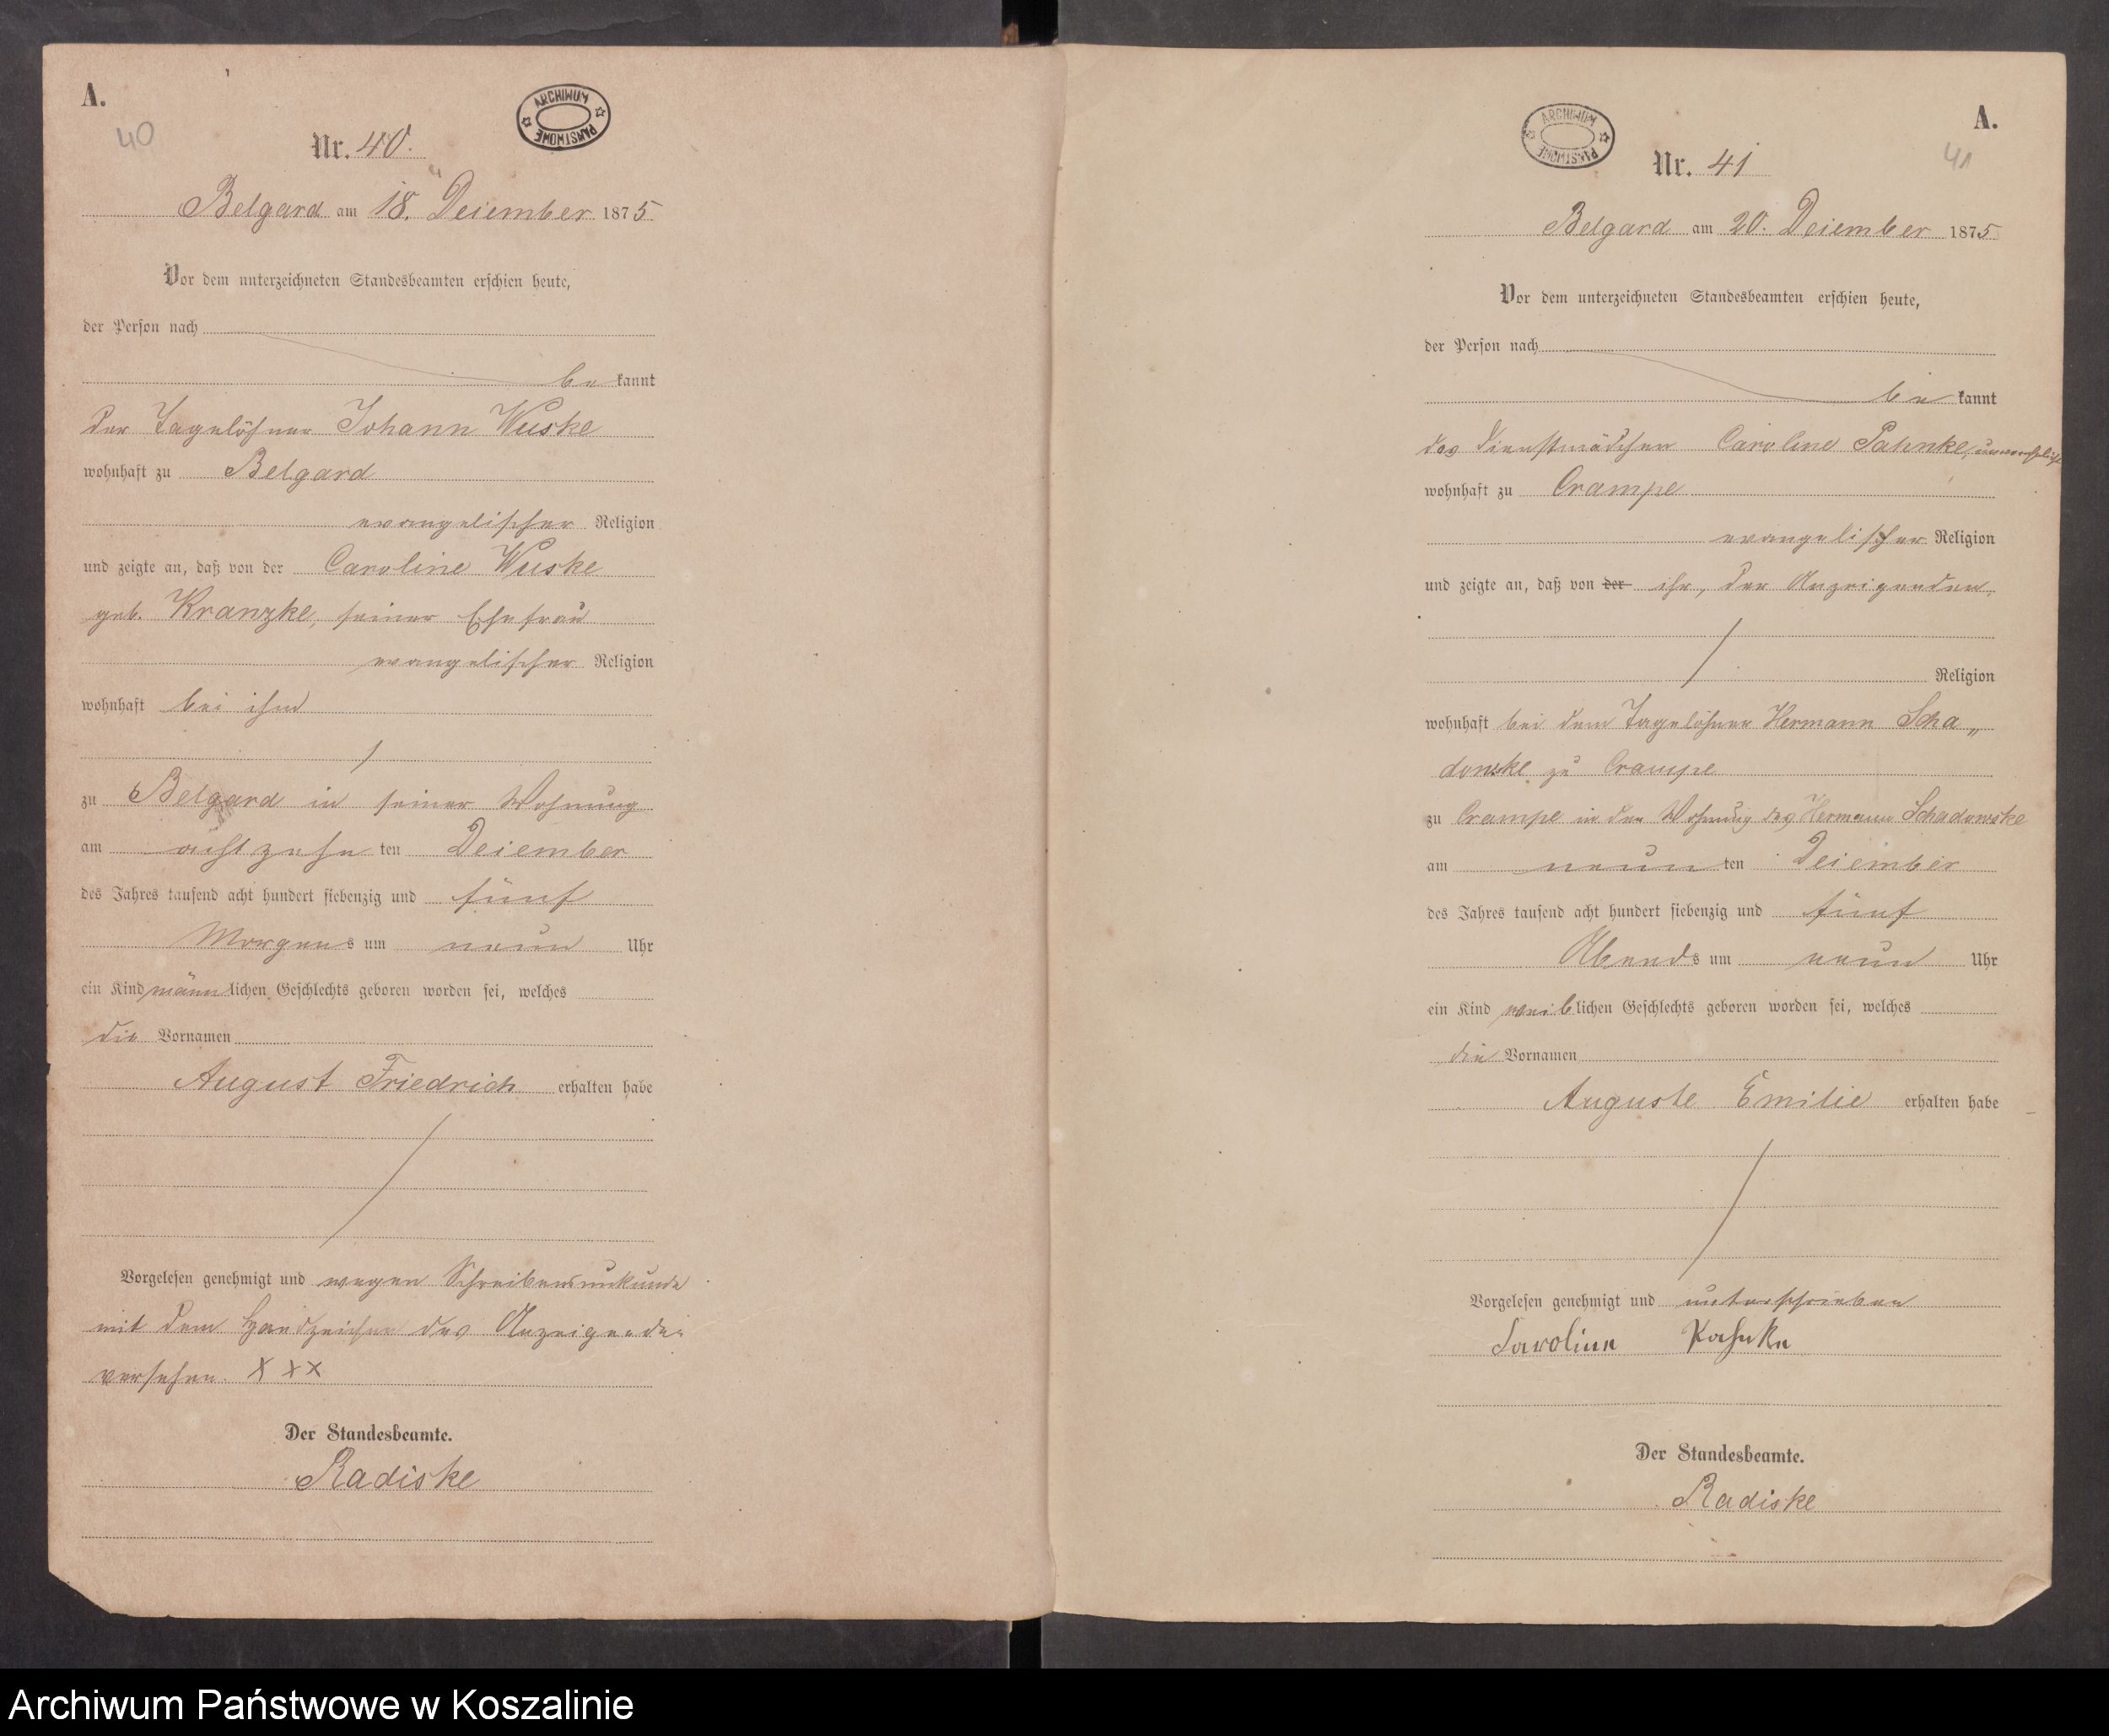 A.
40
ARCHIWUM PAŃSTWOWE
Nr. 40.
Belgard am 18. Dezember 1875
Vor dem unterzeichneten Standesbeamten erschien heute,
der Person nach
be kannt
der Tagelöhner Johann Wuske
wohnhaft zu Belgard
evangelischer Religion
und zeigte an, daß von der Caroline Wuske
geb. Kranzke, seiner Ehefrau
evangelischer Religion
wohnhaft bei ihm
zu Belgard in seiner Wohnung
am achtzehn ten Dezember
des Jahres tausend acht hundert siebenzig und fünf
Morgens um neun Uhr
ein Kind männlichen Geschlechts geboren worden sei, welches
die Vornamen
August Friedrich erhalten habe
Vorgelesen genehmigt und wegen Schreibensunkunde
mit dem Handzeichen des Anzeigenden
versehen. X X X
Der Standesbeamte.
Radiske
A.
41
ARCHIWUM PAŃSTWOWE
Nr. 41
Belgard am 20. Dezember 1875
Vor dem unterzeichneten Standesbeamten erschien heute,
der Person nach
be kannt
das Dienstmädchen Caroline Pahnke, unverehelicht
wohnhaft zu Crampe
evangelischer Religion
und zeigte an, daß von der ihr, der Anzeigenden,
Religion
wohnhaft bei dem Tagelöhner Hermann Scha„
dowske zu Crampe
zu Crampe in der Wohnung des Hermann Schadowske
am neun ten Dezember
des Jahres tausend acht hundert siebenzig und fünf
Abends um neun Uhr
ein Kind weiblichen Geschlechts geboren worden sei, welches
die Vornamen
Auguste Emilie erhalten habe
Vorgelesen genehmigt und unterschrieben
Caroline Pahnke
Der Standesbeamte.
Radiske
Archiwum Państwowe w Koszalinie